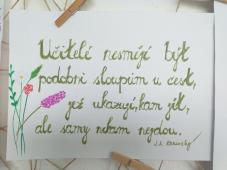 Učitelé nesmějí být
podobni sloupům u cest,
jež ukazují, kam jít,
ale samy nikam nejdou.
J. A. Komenský